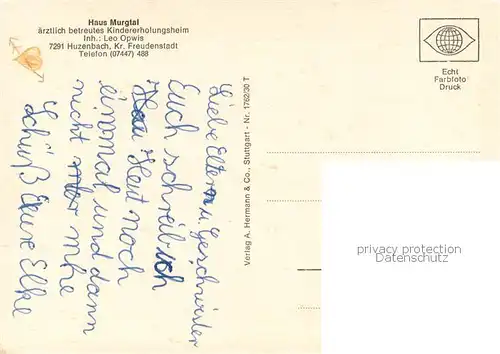 Haus Murgtal
ärztlich betreutes Kindererholungsheim
Inh.: Leo Opwis
7291 Huzenbach, Kr. Freudenstadt
Telefon (07447) 488
Echt
Farbfoto
Druck
Verlag A. Hermann & Co., Stuttgart - Nr. 1762/30 T
Liebe Eltern u. Geschwister
Euch schreib ich
Heut noch
einmal und dann
nicht mehr
Schüß Eure Elke
privacy protection
Datenschutz